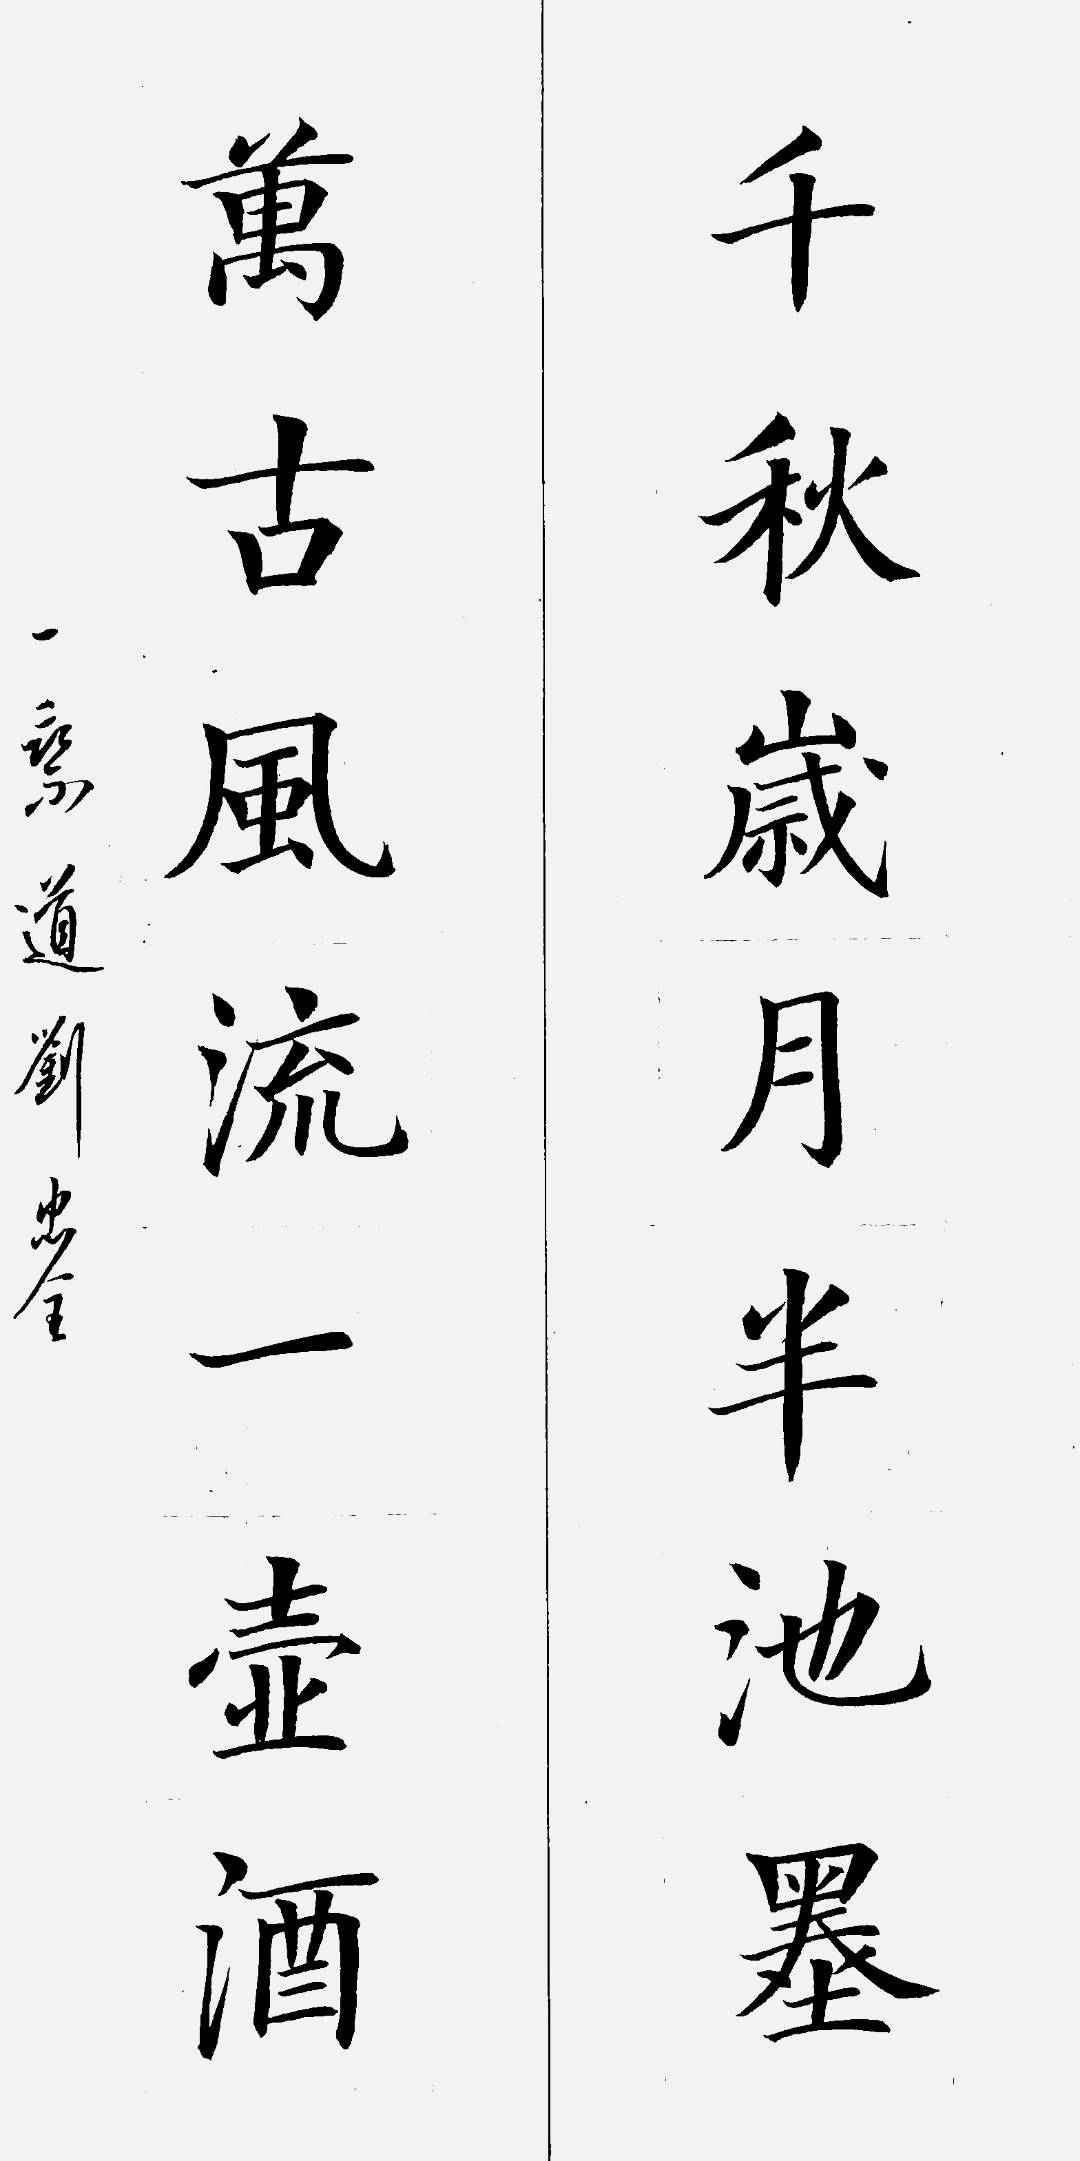 千秋歲月半池墨
萬古風流一壺酒
道劉忠全